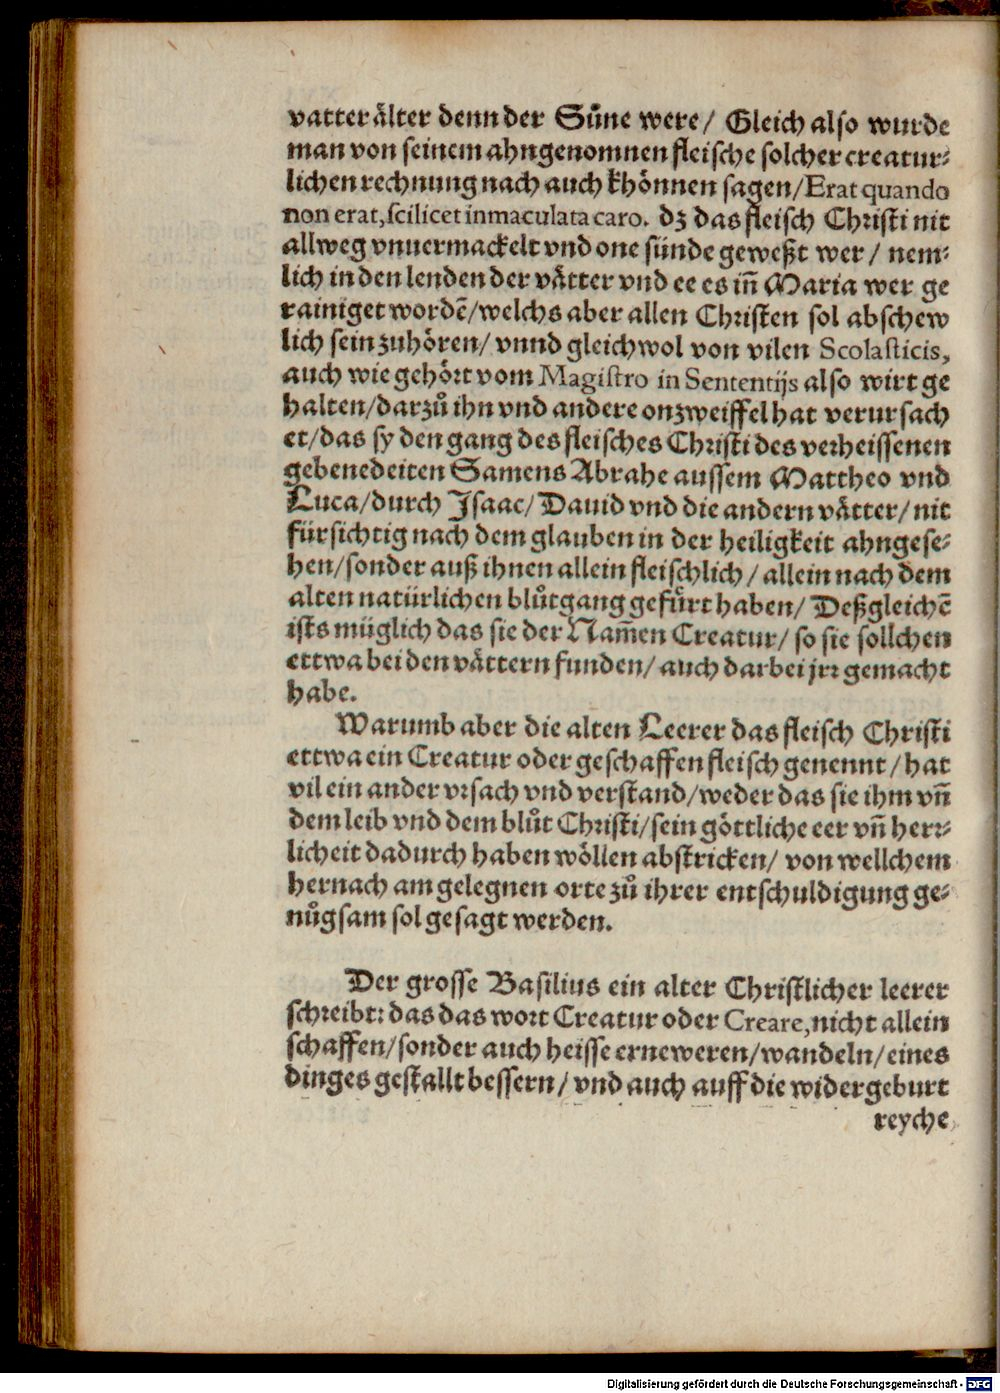 vatter älter denn der Sůne were/ Gleich also wurde
man von seinem ahngenomnen fleische solcher creatur⸗
lichen rechnung nach auch khönnen sagen/Erat quando
non erat, scilicet inmaculata caro. dz das fleisch Christi nit
allweg vnuermackelt vnd one sünde geweßt wer/ nem⸗
lich in den lenden der vätter vnd ee es iñ Maria wer ge
rainiget wordē/welchs aber allen Christen sol abschew
lich sein zuhören/ vnnd gleichwol von vilen Scolasticis,
auch wie gehört vom Magistro in Sententijs also wirt ge
halten/darzů ihn vnd andere onzweiffel hat verursach
et/das sy den gang des fleisches Christi des verheissenen
gebenedeiten Samens Abrahe aussem Mattheo vnd
Luca/durch Isaac/Dauid vnd die andern vätter/nit
fürsichtig nach dem glauben in der heiligkeit ahngese⸗
hen/sonder auß ihnen allein fleischlich/allein nach dem
alten natürlichen blůtgang gefürt haben/ Deßgleichē
ists müglich das sie der Nam̃en Creatur/ so sie sollchen
ettwa bei den vättern funden/ auch darbei jrr gemacht
habe.
Warumb aber die alten Leerer das fleisch Christi
ettwa ein Creatur oder geschaffen fleisch genennt/hat
vil ein ander vrsach vnd verstand/weder das sie ihm vñ
dem leib vnd dem blůt Christi/sein göttliche eer vñ herr⸗
licheit dadurch haben wöllen abstricken/ von wellchem
hernach am gelegnen orte zů ihrer entschuldigung ge⸗
nůgsam sol gesagt werden.
Der grosse Basilius ein alter Christlicher leerer
schreibt: das das wort Creatur oder Creare, nicht allein
schaffen/sonder auch heisse erneweren/wandeln/eines
dinges gestallt bessern/ vnd auch auff die widergeburt
reyche
Digitalisierung gefördert durch die Deutsche Forschungsgemeinschaft - DFG